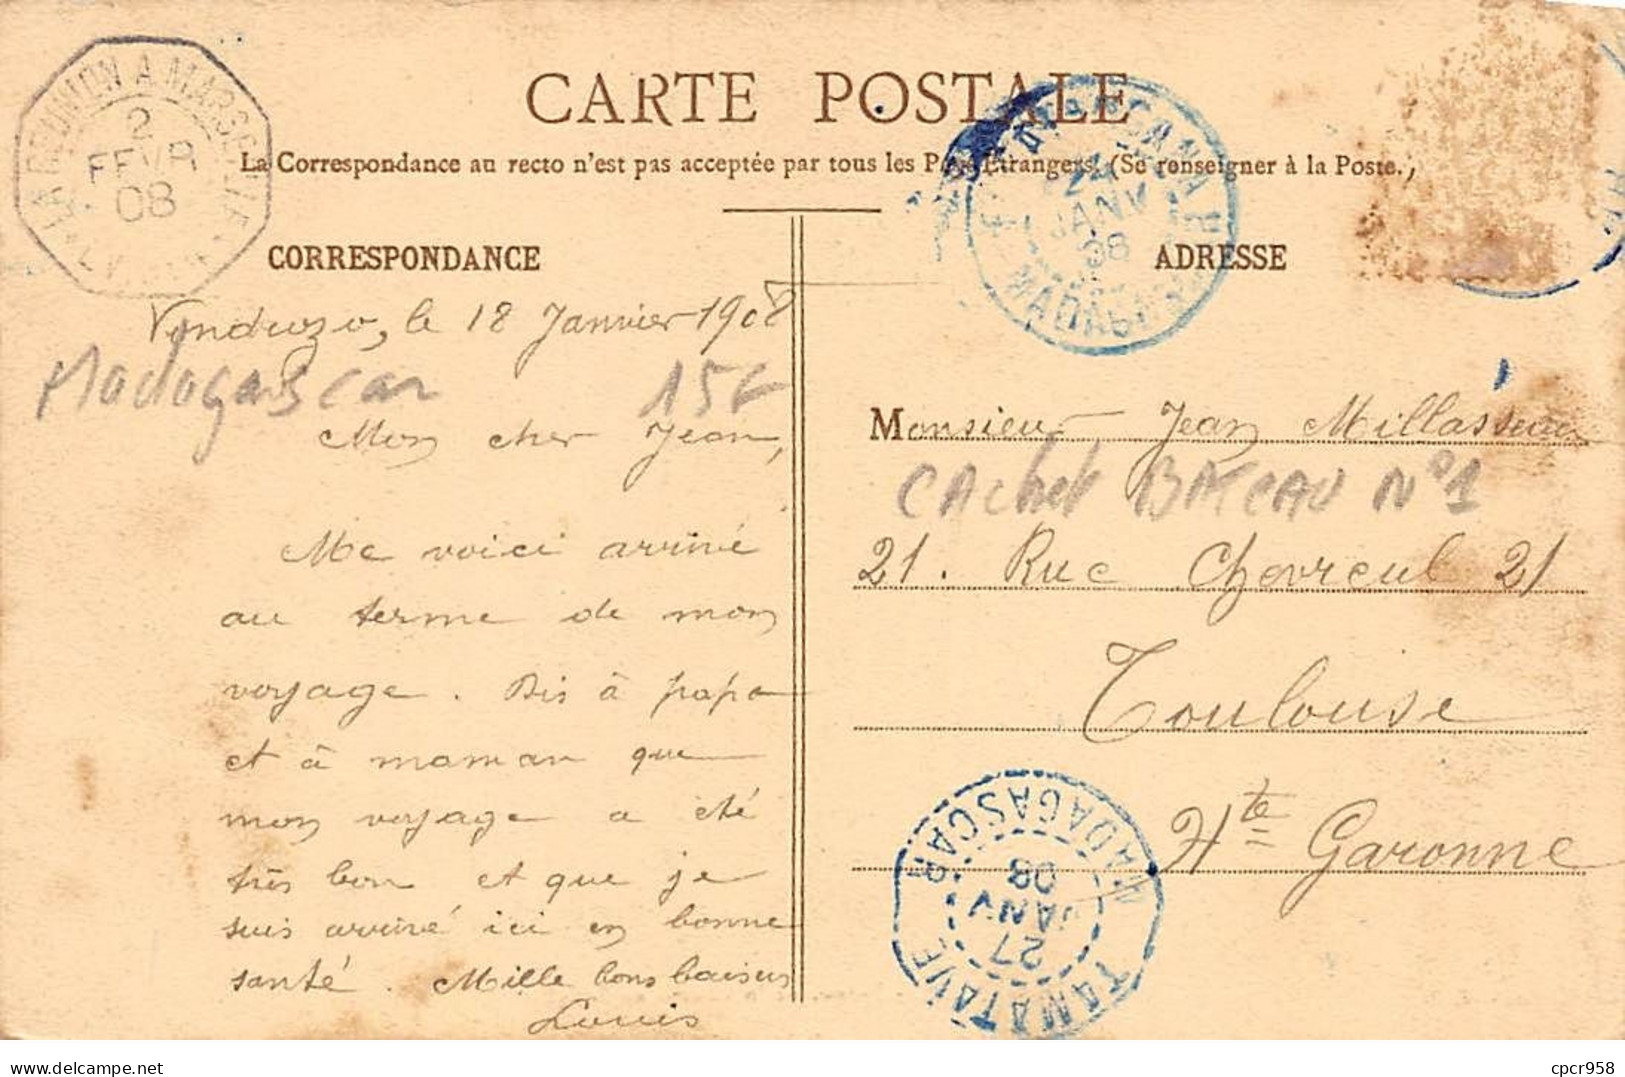 CARTE POSTALE
La Correspondance au recto n'est pas acceptée par tous les Pays Etrangers. (Se renseigner à la Poste.)
LA REUNION A MARSEILLE
2
FEVR
08
24
JANV
08
MADAGASCAR
CORRESPONDANCE
ADRESSE
Vondrozo, le 18 Janvier 1908
Madagascar 15€
Mon cher Jean,
Me voici arrivé
au terme de mon
voyage. Dis à papa
et à maman que
mon voyage a été
très bon et que je
suis arrivé ici en bonne
santé. Mille bons baisers
Louis
Monsieur Jean Millasseau
CACHET BATEAU N°1
21. Rue Chevreul 21
Toulouse
Hte Garonne
TAMATAVE
27
JANV
08
MADAGASCAR
delcampe.net
cpcr958